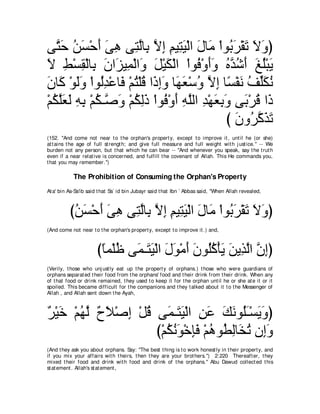 (وَلاَ تَقْرَبُواْ مَالَ الْيَتِيمِ إِلاَّ بِالَّتِى هِىَ أَحْسَنُ حَتَّى
يَبْلُغَ أَشُدَّهُ وَأَوْفُواْ الْكَيْلَ وَالْمِيزَانَ بِالْقِسْطِ لاَ
نُكَلِّفُ نَفْسًا إِلاَّ وُسْعَهَا وَإِذَا قُلْتُمْ فَاعْدِلُواْ وَلَوْ كَانَ
ذَا قُرْبَى وَبِعَهْدِ اللَّهِ أَوْفُواْ ذَلِكُمْ وَصَّـكُمْ بِهِ لَعَلَّكُمْ
تَذَكَّرُونَ )
(152. "And come not near to the orphan's property, except to improve it, until he (or she)
attains the age of full strength; and give full measure and full weight with justice." -- We
burden not any person, but that which he can bear -- "And whenever you speak, say the truth
even if a near relative is concerned, and fulfill the covenant of Allah. This He commands you,
that you may remember.")
The Prohibition of Consuming the Orphan's Property
Ata' bin As-Sa'ib said that Sa`id bin Jubayr said that Ibn `Abbas said, "When Allah revealed,
(وَلاَ تَقْرَبُواْ مَالَ الْيَتِيمِ إِلاَّ بِالَّتِى هِىَ أَحْسَنُ)
(And come not near to the orphan's property, except to improve it.) and,
(إِنَّ الَّذِينَ يَأْكُلُونَ أَمْوَلَ الْيَتَـمَى ظُلْماً)
(Verily, those who unjustly eat up the property of orphans.) those who were guardians of
orphans separated their food from the orphans' food and their drink from their drink. When any
of that food or drink remained, they used to keep it for the orphan until he or she ate it or it
spoiled. This became difficult for the companions and they talked about it to the Messenger of
Allah , and Allah sent down the Ayah,
(وَيَسْـَلُونَكَ عَنِ الْيَتَـمَى قُلْ إِصْلاَحٌ لَّهُمْ خَيْرٌ
وَإِن تُخَالِطُوهُمْ فَإِخْوَنُكُمْ)
(And they ask you about orphans. Say: "The best thing is to work honestly in their property, and
if you mix your affairs with theirs, then they are your brothers.") 2:220 Thereafter, they
mixed their food and drink with food and drink of the orphans." Abu Dawud collected this
statement. Allah's statement,